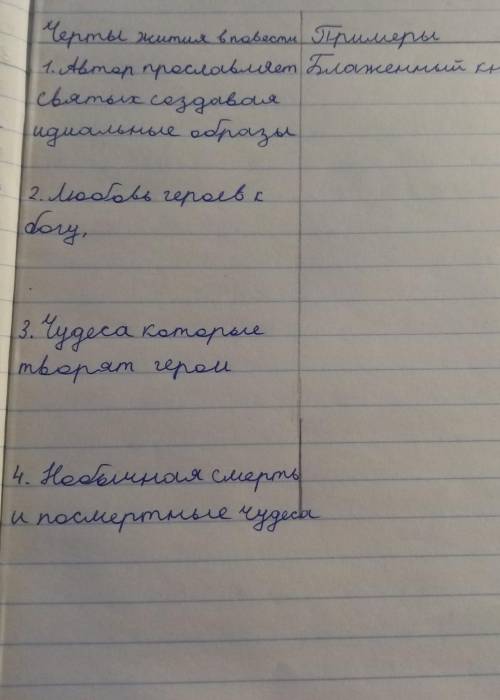 Черты жития в повести Примеры
1. Автор прославляет Блаженный кн
святых создавая
идиальные образы
2. Любовь героев к
богу,
3. Чудеса которые
творят герои
4. Необычная смерть
и посмертные чудеса